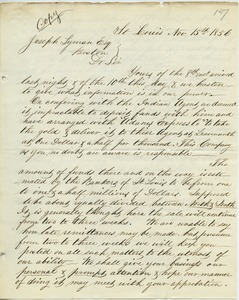 Copy
147
St Louis Nov 15th 1856
Joseph Lyman Esq
Boston
Dr Sir
Yours of the 8th received
last night, & of the 10th this day, & we hasten
to give what information is in our power.
On conferring with the Indian Agent we deemed
it impracticable to deposit funds with him and
have arranged with Adams Express Co to take
the gold & deliver it to these Agents at Leavenworth
at One Dollar & a half per thousand. This Company
as you no doubt are aware is responsible.
The
amount of funds there and on the way is esti-
mated by the Bankers of St Louis & Kansas one
to one & a half millions of Dollars. Supposed
to be about equally divided between North & South
It is generally thought here the sale will continue
from two to three weeks. We are unable to say
how late remittances may be made, but presume
from two to three weeks we will keep you
posted on all such matters to the utmost of
our ability. We shall give your business our
personal & prompt attention & hope our manner
of doing it may meet with your approbation.